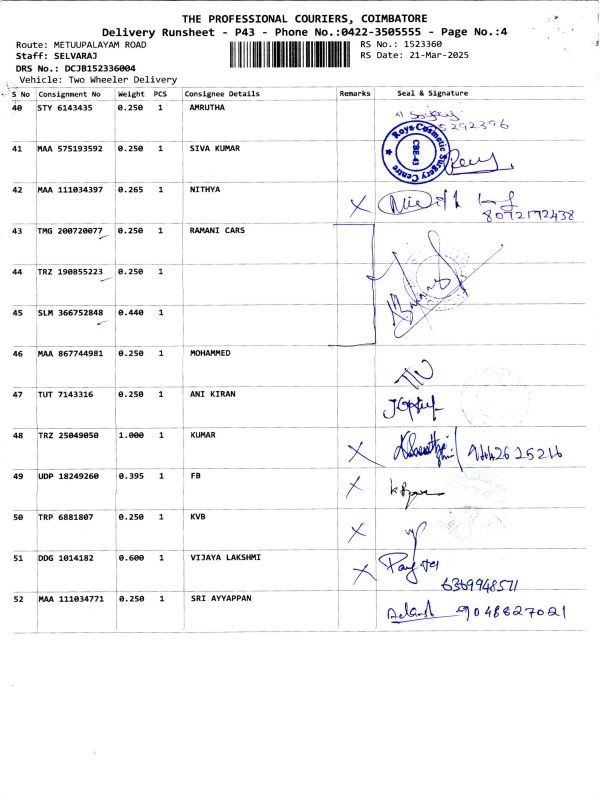 THE PROFESSIONAL COURIERS, COIMBATORE
Delivery Runsheet - P43 - Phone No.:0422-3505555 - Page No.:4
Route: METUUPALAYAM ROAD RS No.: 1523360
Staff: SELVARAJ RS Date: 21-Mar-2025
DRS No.: DCJB152336004
Vehicle: Two Wheeler Delivery
S No Consignment No Weight PCS Consignee Details Remarks Seal & Signature
40 STY 6143435 0.250 1 AMRUTHA
292396
41 MAA 575193592 0.250 1 SIVA KUMAR
Roys Cosmetic Surgery Centre
CBE-43
42 MAA 111034397 0.265 1 NITHYA X
8072172438
43 TMG 200720077 0.250 1 RAMANI CARS
44 TRZ 190855223 0.250 1
45 SLM 366752848 0.440 1
46 MAA 867744981 0.250 1 MOHAMMED
47 TUT 7143316 0.250 1 ANI KIRAN
48 TRZ 25049050 1.000 1 KUMAR X
49 UDP 18249260 0.395 1 FB X
50 TRP 6881807 0.250 1 KVB X
51 DDG 1014182 0.600 1 VIJAYA LAKSHMI X
6369948571
52 MAA 111034771 0.250 1 SRI AYYAPPAN
9048827021